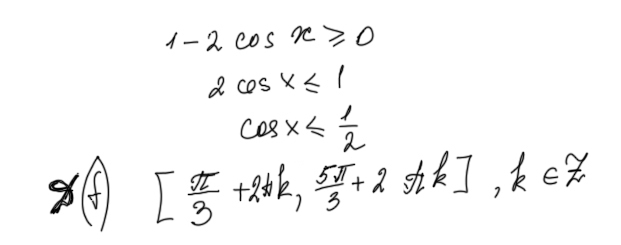 1 - 2 cos x ⩾ 0
2 cos x ⩽ 1
cos x ⩽ 1/2
D(f) [π/3 + 2πk, 5π/3 + 2πk], k ∈ Z